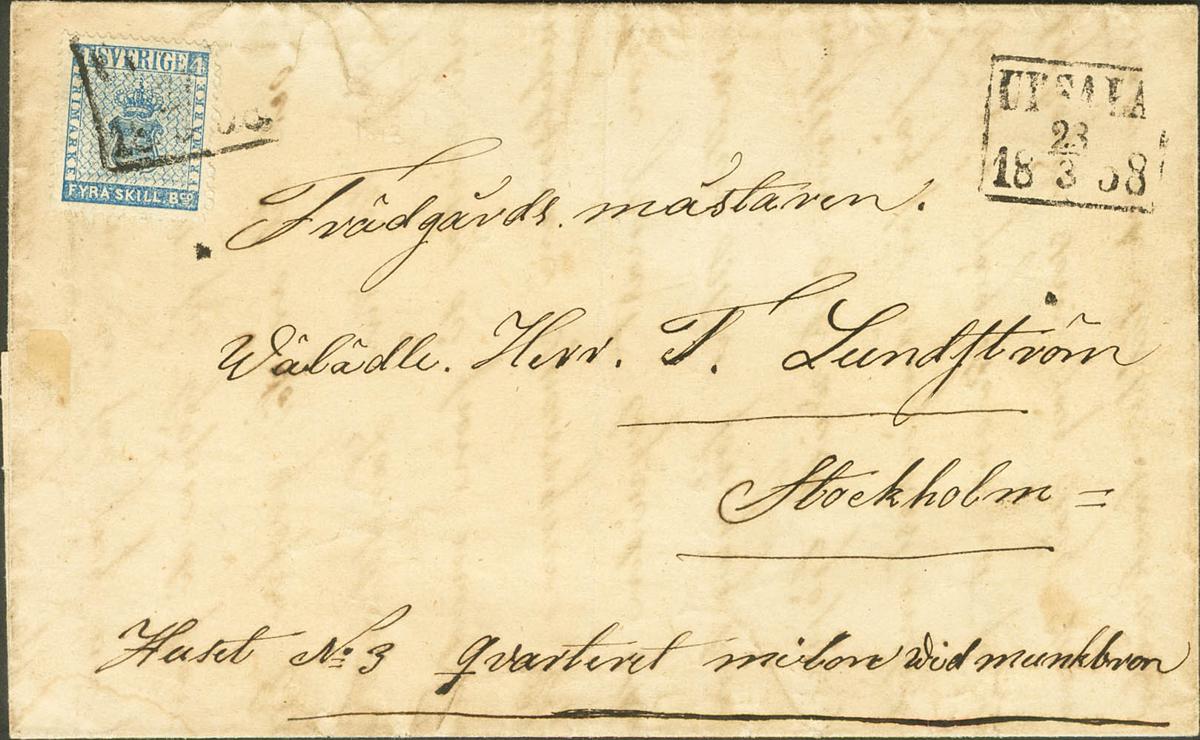 4 SVERIGE 4
FRIMÄRKE FRIMÄRKE
FYRA SKILL. Bco
UPSALA
23
18 3 58
Trädgårds mästaren.
Wälädle. Herr. T. Lundström
Stockholm =
Huset No 3 qvarteret milon wid munkbron